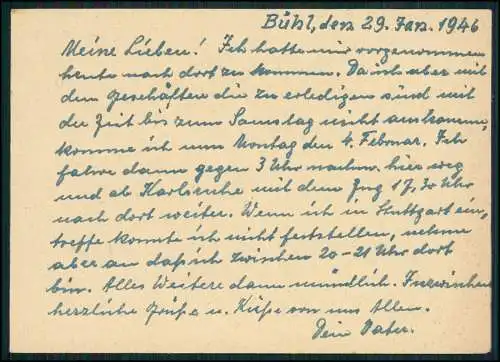 Bühl, den 29. Jan. 1946
Meine Lieben! Ich hatte mir vorgenommen
heute nach dort zu kommen. Da ich aber mit
den Geschäften die zu erledigen sind mit
der Zeit bis zum Samstag nicht auskomme,
komme ich nun Montag den 4. Februar. Ich
fahre dann gegen 3 Uhr nachm. hier weg
und ab Karlsruhe mit dem Zug 17,30 Uhr
nach dort weiter. Wenn ich in Stuttgart ein,
treffe konnte ich nicht feststellen, nehme
aber an daß ich zwischen 20-21 Uhr dort
bin. Alles Weitere dann mündlich. Inzwischen
herzliche Grüße u. Küße von uns Allen.
Dein Vater.